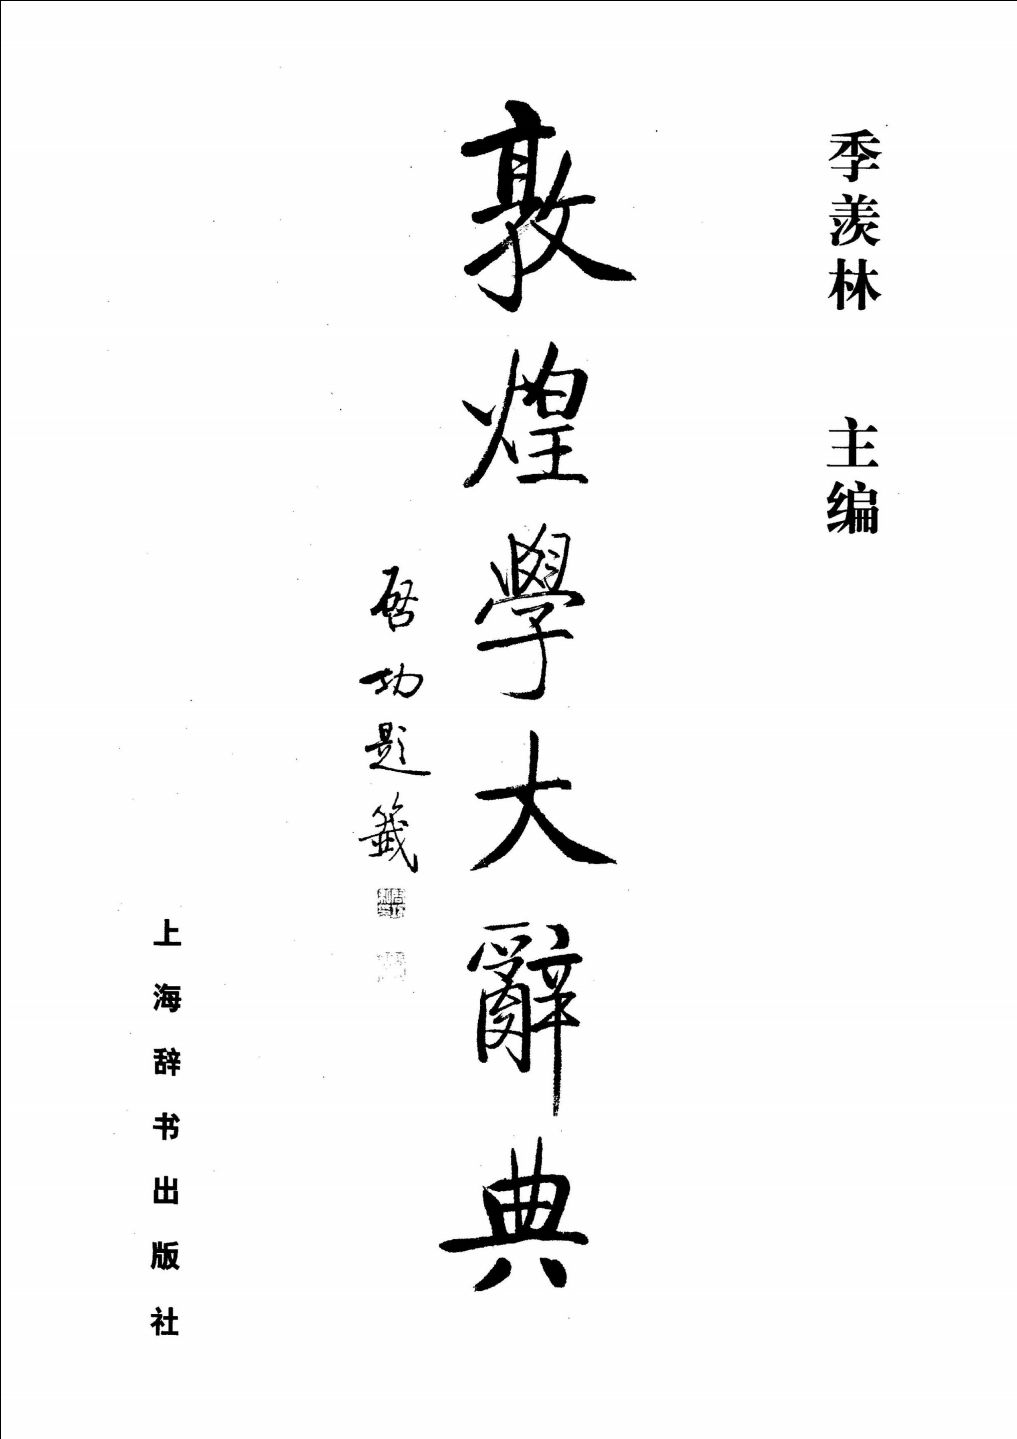 季羡林 主编
敦煌學大辭典
启功題籤
上海辞书出版社